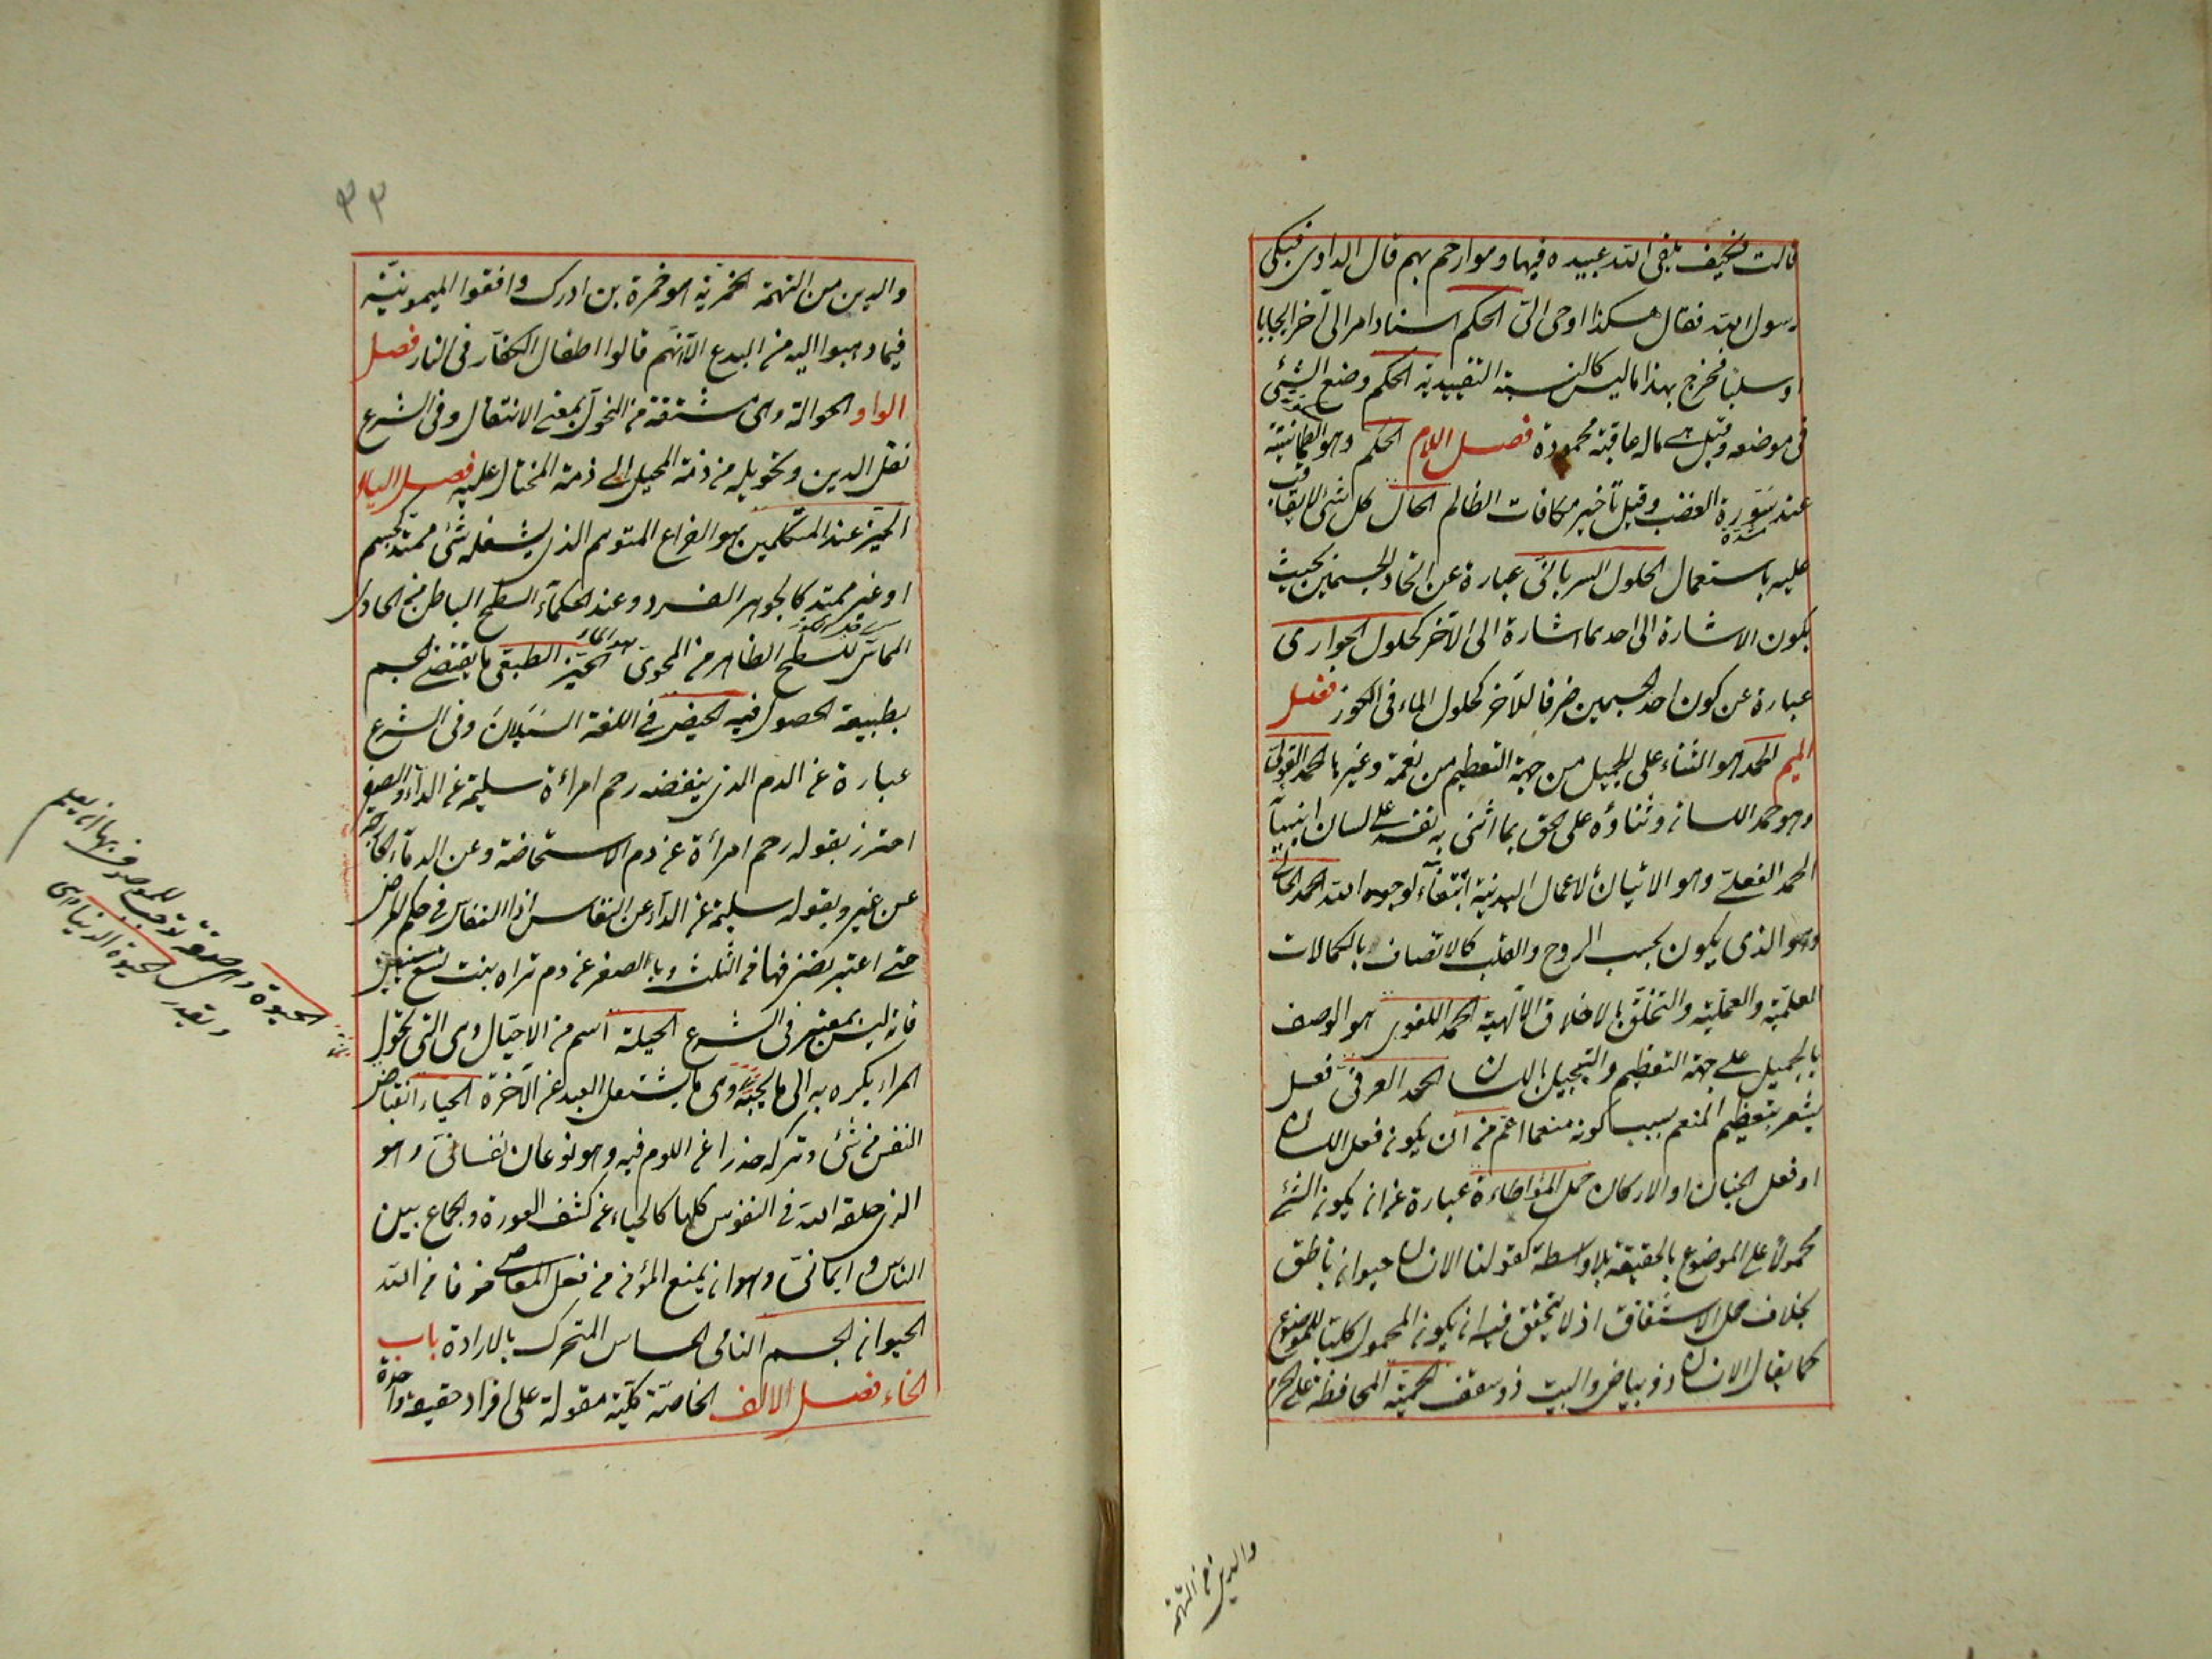 قالت فكيف يلقى الله عبيده فيها وهو ارحم بهم قال الراوى فبكى
رسول الله فقال هكذا اوحى الىّ الحكم اسناد امر الى آخر ايجابا
او سلبا فخرج بهذا ما ليس كالنسبة التقييدية الحكم وضع الشيئ
فى موضعه وقيل هى ماله عاقبة محمودة فصل اللام الحكم وهو الطمانينة
عند سَوْرة الغضب وقيل تأخير مكافات الظالم الحال كل شئ لا بقاء
عليه باستعمال الحلول السريانى عبارة عن اتحاد الجسمين بحيث
يكون الاشارة الى احدهما اشارة الى الآخر كحلول الجوارى
عبارة عن كون احد الجسمين ظرفا للآخر كحلول الماء فى الكوز فصل
الميم الحمد هو الثناء على الجميل من جهة التعظيم من نعمة وغيرها الحمد القولى
وهو حمد اللسان وثناؤه على الحق بما اثنى به نفسه على لسان انبيآ
الحمد الفعلى وهو الاتيان بالاعمال البدنية ابتغآء لوجه الله الحمد الحالى
وهو الذى يكون بحسب الروح والقلب كالاتصاف بالكمالات
العلميّة والعمليّة والتخلّق بالاخلاق الآلهية الحمد اللغوى هو الوصف
بالجميل على جهة التعظيم والتبجيل باللسان الحمد العرفىّ فعل
يشعر بتعظيم المنعم بسبب كونه منعما اعم من ان يكون فعل اللسان
او فعل الجنان او الاركان حمل المؤاطاءة عبارة عن ان يكون الشئ
محمولاً على الموضوع بالحقيقة بلا واسطة كقولنا الانسان حيوان ناطق
بخلاف حمل الاشتقاق اذ لا يتحقق فيه ان يكون المحمول كليا للموضوع
كما يقال الانسان ذو بياض والبيت ذو سقف الحميّة المحافظة على الحرم
والدين من التهمة
٣٣
والدين من التهمة الحمزيّة هو حمزة بن ادرك وافقوا الميمونيّة
فيما ذهبوا اليه من البدع الا انّهم قالوا اطفال الكفّار فى النار فصل
الواو الحوالة وهى مشتقة من التحول بمعنى الانتقال وفى الشرع
نقل الدين وتحويله من ذمة المحيل الى ذمة المحتال عليه فصل الياء
الحيّز عند المتكلمين هو الفراغ المتوهم الذى يشغله شئ ممتد كجسم
او غير ممتد كالجوهر الفرد وعند الحكمآء السطح الباطن من الحاوى
المماسّ للسطح الظاهر من المحوى الحيّز الطبيعى ما يقتضى الجسم
بطبيعة الحصول فيه الحيض فى اللغة السَّيَلان وفى الشرع
عبارة عن الدم الذى ينفضه رحم امرأة سليمة عن الدآء والصغر
احترز بقوله رحم امرأة عن دم الاستحاضة وعن الدمآء الخارجة
عن غيره وبقوله سليمة عن الدآء عن النفاس اذ النفاس فى حكم المرض
حتى اعتبر تصرفها فى الثلث وبالصغر عن دم تراه بنت تسع سنين
فانه ليس بمعتبر فى الشرع الحيلة اسم من الاحتيال وهى التى تحوّل
المرء بكره به الى ما يحبّه وهى ما يشتعل العبد عن الآخرة الحياء انقباض
النفس من شئ وتركه حذرا عن اللوم فيه وهو نوعان نفسانىّ وهو
الذى خلقه الله فى النفوس كلها كالحياء عن كشف العورة والجماع بين
الناس وايمانىّ وهو ان يمنع المؤمن من فعل المعاصى خوفا من الله
الحيوان الجسم النامى الحساس المتحرك بالارادة باب
الخاء فصل الالف الخاصّة كلّية مقولة على افراد حقيقة واحدة
الحيوة وهى صفة توجب للموصوف بها ان يعلم
ويقدر الحيوة الدنيا هى